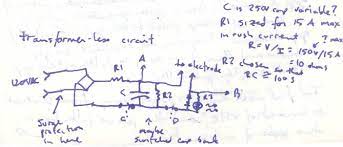 C is 250V cap variable?
R1 sized for 15 A max
in rush current ? max
R = V/I = 150V/15A
= 10 ohms
R2 chosen so that
RC ≥ 100 s
Transformer-less circuit
120VAC
R1
A
C
R2
to electrode
R3
B
C
D
Surge
protection
in here
maybe
switched cap bank